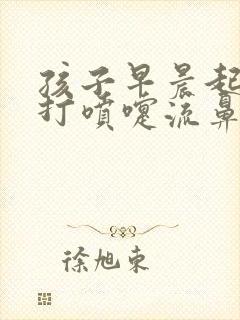 孩子早晨起
打喷嚏流鼻
徐旭东